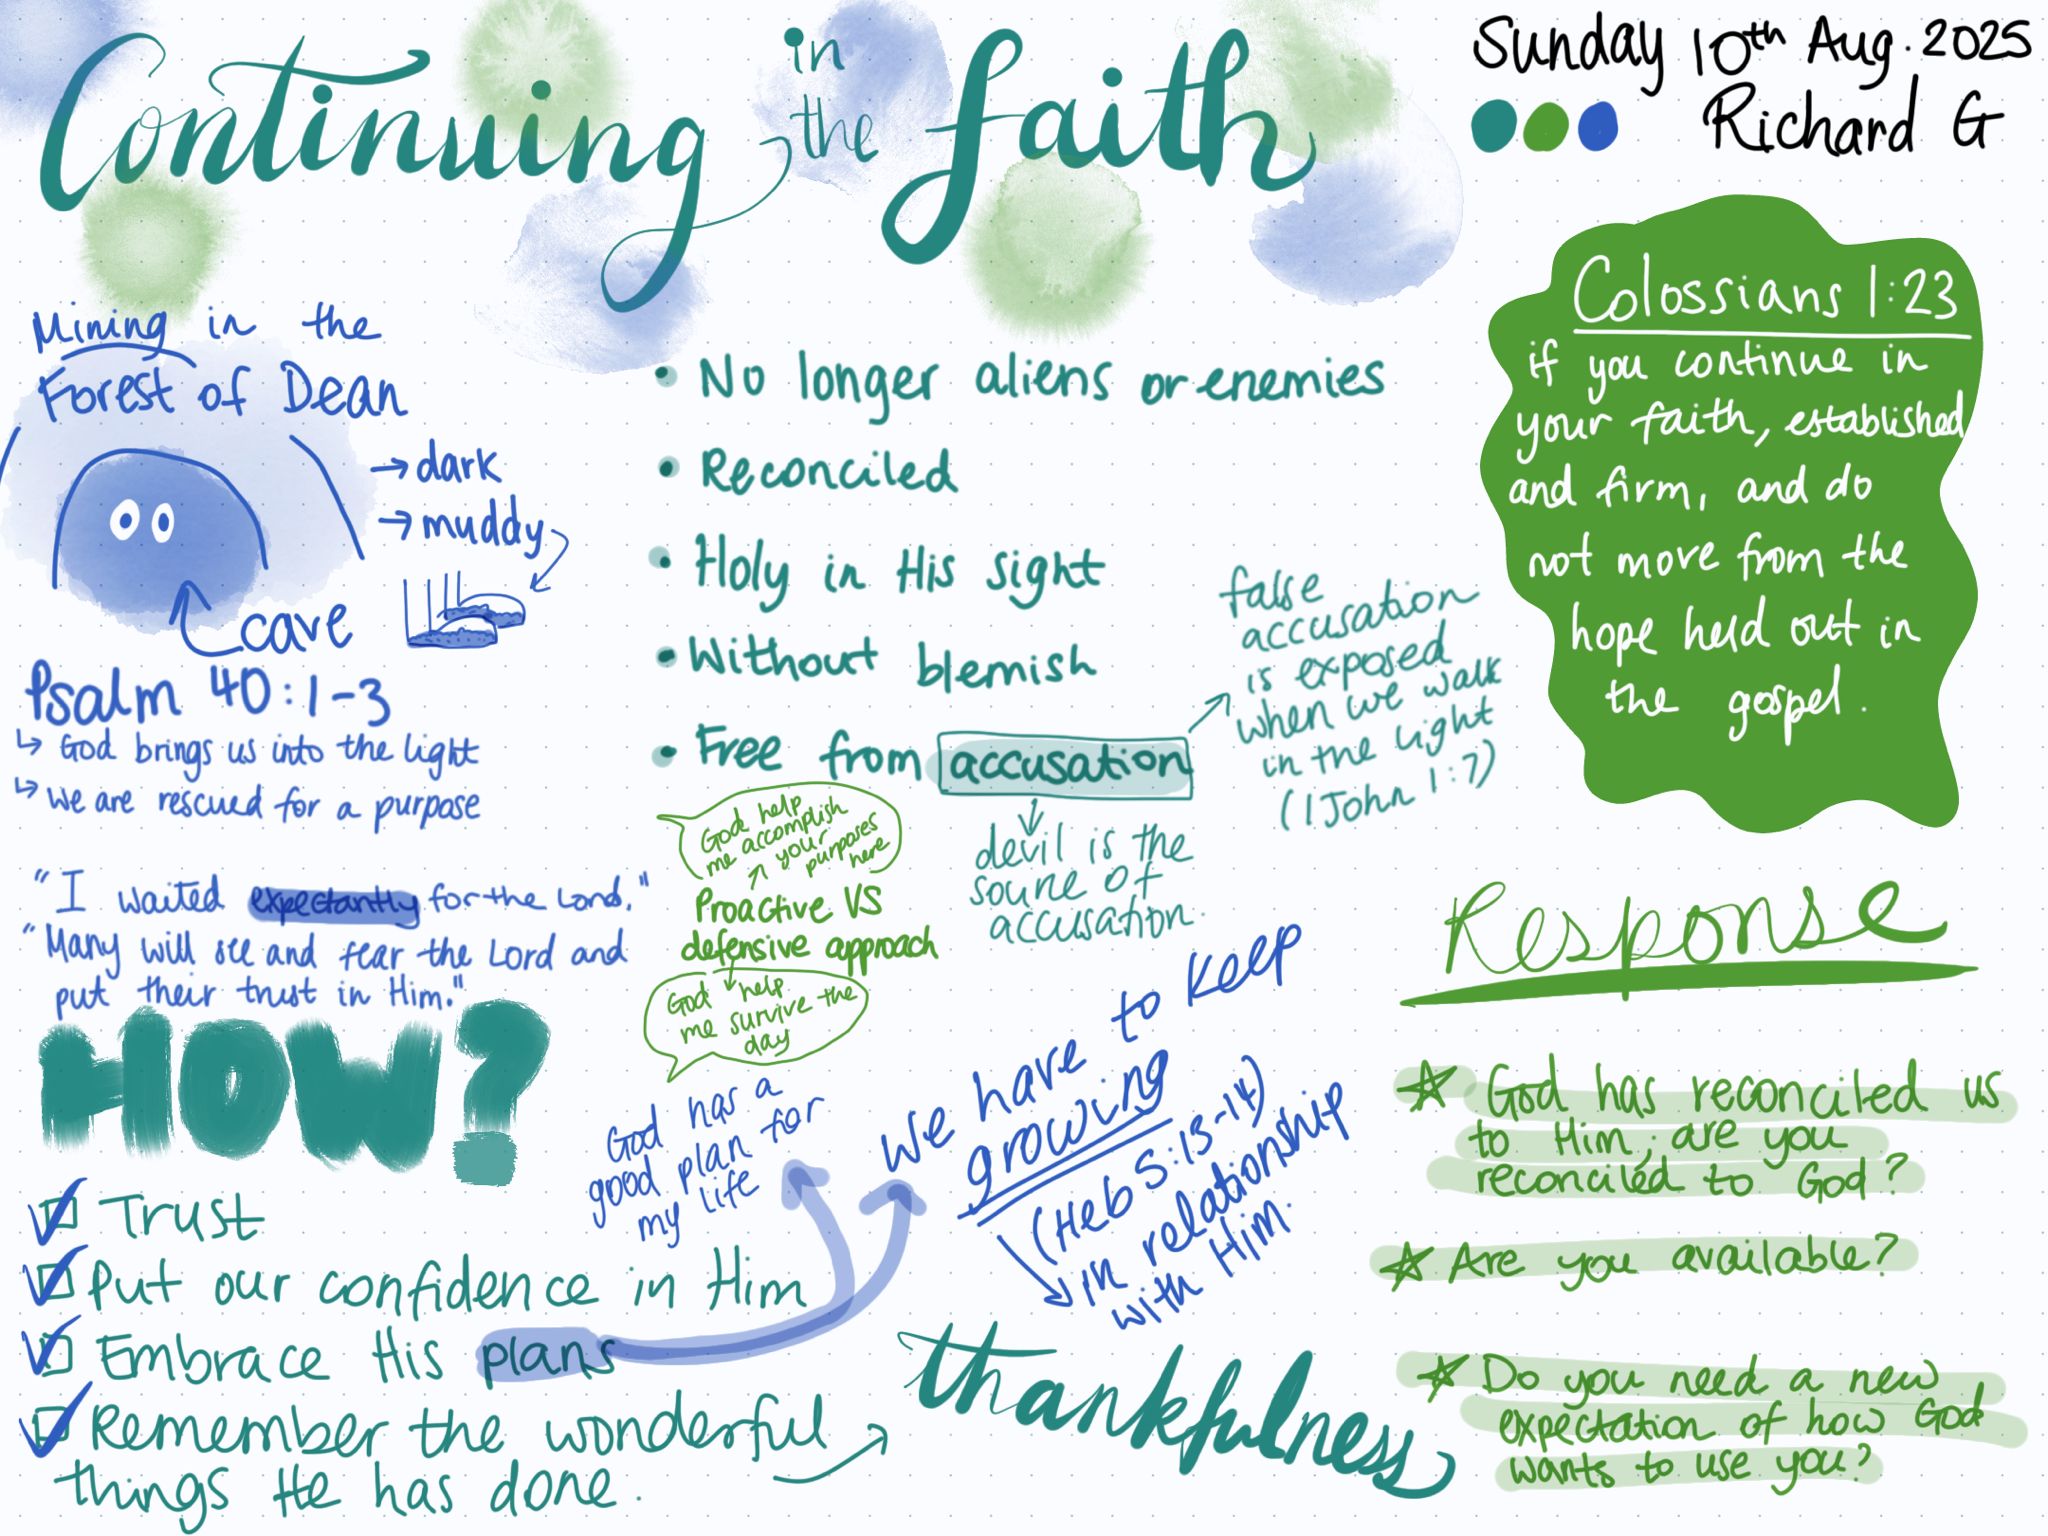 Continuing in the faith
Sunday 10th Aug. 2025
Richard G
Mining in the
Forest of Dean
→ dark
→ muddy
cave
Psalm 40:1-3
↳ God brings us into the light
↳ we are rescued for a purpose
"I waited expectantly for the Lord."
"Many will see and fear the Lord and
put their trust in Him."
• No longer aliens or enemies
• Reconciled
• Holy in His sight
• Without blemish
• Free from accusation
false
accusation
is exposed
when we walk
in the light
(1 John 1:7)
devil is the
source of
accusation.
God help
me accomplish
your
purposes
here
Proactive VS
defensive approach
God help
me survive the
day
Colossians 1:23
if you continue in
your faith, established
and firm, and do
not move from the
hope held out in
the gospel.
HOW?
Trust
Put our confidence in Him
Embrace His plans
Remember the wonderful
things He has done.
God has a
good plan for
my life
We have to keep
growing
(Heb 5:13-14)
in relationship
with Him.
thankfulness
Response
☆ God has reconciled us
to Him, are you
reconciled to God?
☆ Are you available?
☆ Do you need a new
expectation of how God
wants to use you?